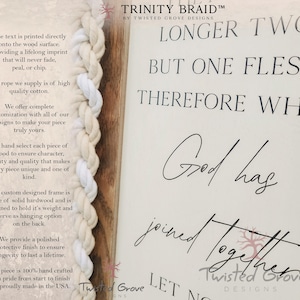 TRINITY BRAID™
BY TWISTED GROVE DESIGNS
text is printed directly
to the wood surface
viding a lifelong imprint
that will never fade,
peal, or chip.
rope we supply is of high
quality cotton.
We offer complete
omization with all of our
gns to make your piece
truly yours.
hand select each piece of
ood to ensure character,
ty and quality that makes
y piece unique and one of
kind.
custom designed frame is
of solid hardwood and is
ned to hold it's weight
erve as hanging option
on the back.
We provide a polished
otective finish to ensure
gevity to last a lifetime.
piece is 100% hand crafted
pride from start to finish
proudly made in the USA.
LONGER TWO
BUT ONE FLES
THEREFORE WH
God has
joined together
LET N
Twisted Grove
DESIGNS
Twisted Grove
DESIGNS